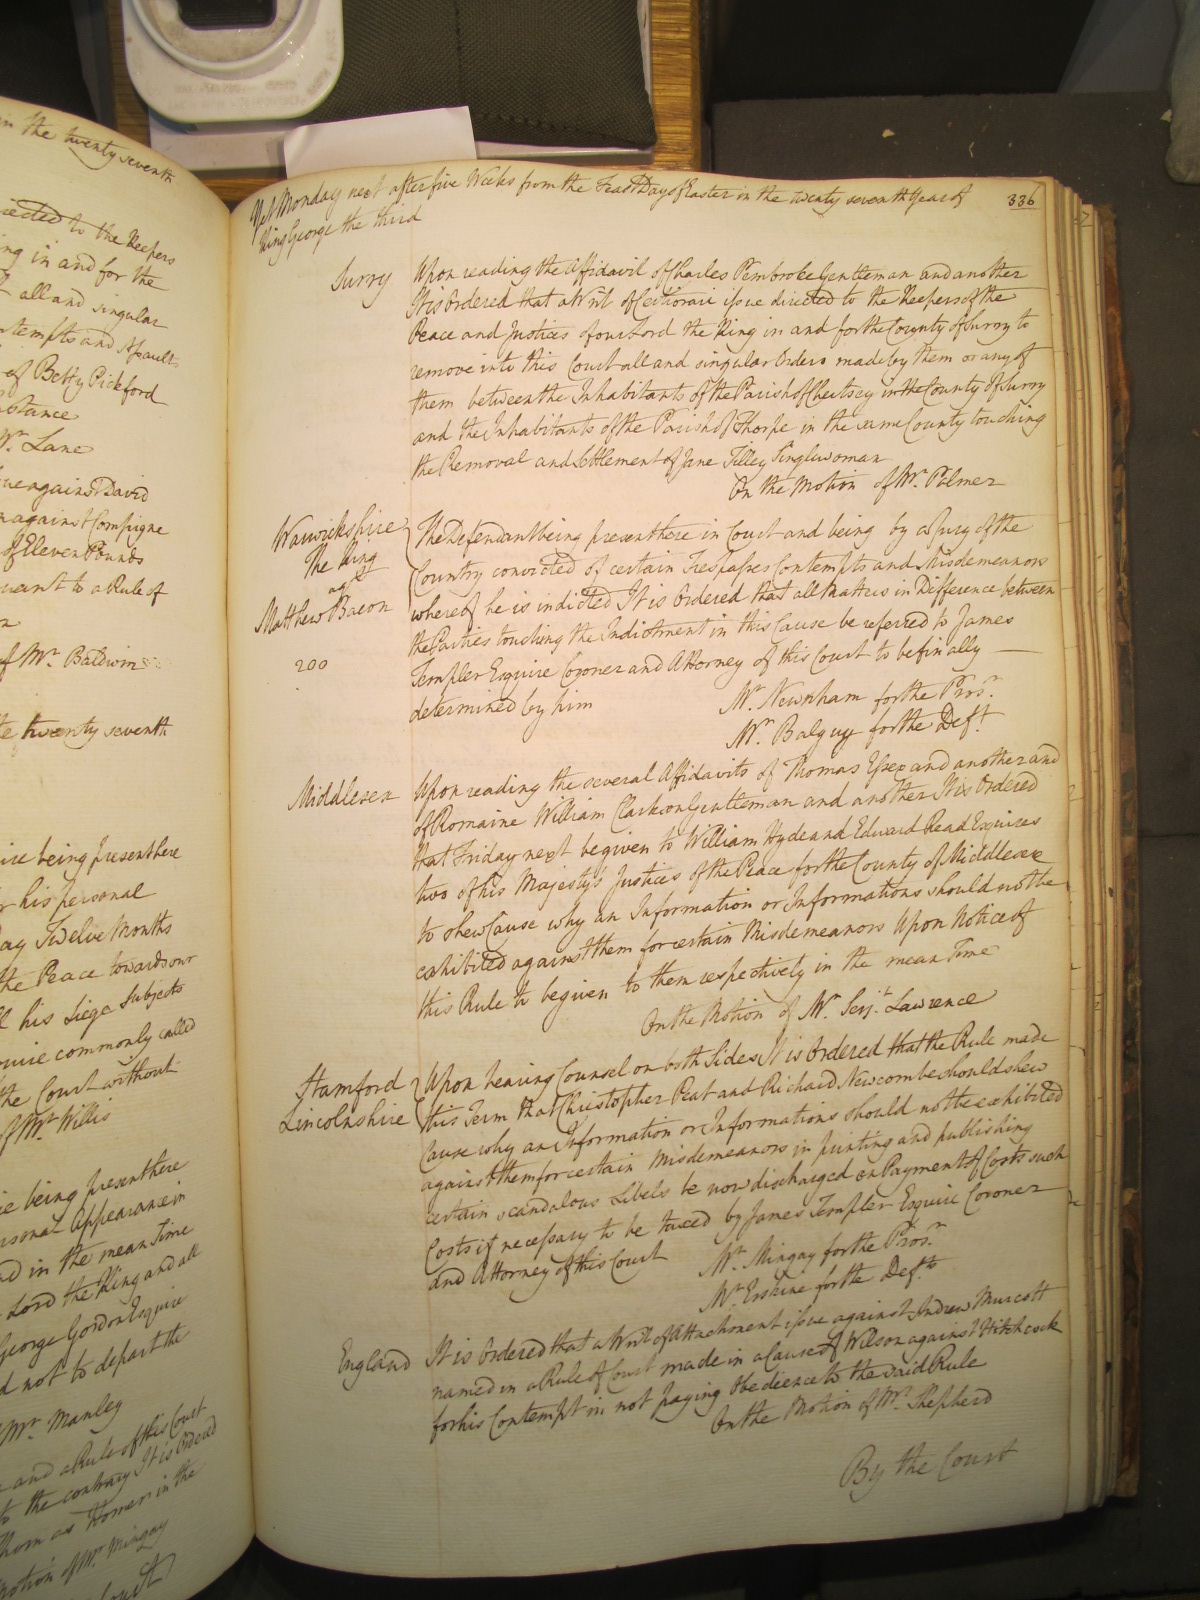 in the twenty seventh
directed to the Keepers
ing in and for the
all and singular
ntempts and Assault
of Betty Pickford
nstance
Mr. Lane
ue against David
n against Compigne
of Eleven Pounds
uant to a Rule of
of Mr. Baldwin
te twenty seventh
ire being present here
r his personal
ay Twelve Months
the Peace towards our
ll his Liege Subjects
quire commonly called
the Court without
of Mr. Willis
ie being present here
rsonal Appearance in
nd in the mean Time
Lord the King and all
George Gordon Esquire
d not to depart the
Mr. Manley
and a Rule of this Court
to the contrary It is Ordered
Thorn as Horner in the
Motion of Mr. Mingay
Court
336
Yet Monday next after five Weeks from the Feast Day of Easter in the twenty seventh Year of
King George the third
Surry
Upon reading the Affidavit of Charles Pembroke Gentleman and another
It is Ordered that a Writ of Certiorari issue directed to the Keepers of the
Peace and Justices of our Lord the King in and for the County of Surry to
remove into this Court all and singular Orders made by them or any of
them between the Inhabitants of the Parish of Chertsey in the County of Surry
and the Inhabitants of the Parish of Thorpe in the same County touching
the Removal and Settlement of Jane Tilley Singlewoman
On the Motion of Mr. Palmer
Warwickshire
The King
agt
Matthew Bacon
200
The Defendant being present here in Court and being by a Jury of the
Country convicted of certain Trespasses Contempts and Misdemeanors
whereof he is indicted It is Ordered that all Matters in Difference between
the Parties touching the Indictment in this Cause be referred to James
Templer Esquire Coroner and Attorney of this Court to be finally
determined by him
Mr. Newnham for the Prosr.
Mr. Balguy for the Deft.
Middlesex
Upon reading the several Affidavits of Thomas Essex and another and
of Romaine William Clarkson Gentleman and another It is Ordered
that Friday next be given to William Hyde and Edward Read Esquires
two of his Majesty's Justices of the Peace for the County of Middlesex
to shew Cause why an Information or Informations should not be
exhibited against them for certain Misdemeanors Upon Notice of
this Rule to be given to them respectively in the mean Time
On the Motion of Mr. Serjt. Lawrence
Stamford
Lincolnshire
Upon hearing Counsel on both Sides It is Ordered that the Rule made
this Term that Christopher Peat and Richard Newcombe should shew
Cause why an Information or Informations should not be exhibited
against them for certain Misdemeanors in printing and publishing
certain scandalous Libels be now discharged on Payment of Costs such
Costs if necessary to be taxed by James Templer Esquire Coroner
and Attorney of this Court
Mr. Mingay for the Prosr.
Mr. Erskine for the Defts.
England
It is Ordered that a Writ of Attachment issue against Andrew Murcott
named in a Rule of Court made in a Cause of Wilson against Hitchcock
for his Contempt in not paying Obedience to the said Rule
On the Motion of Mr. Shepherd
By the Court